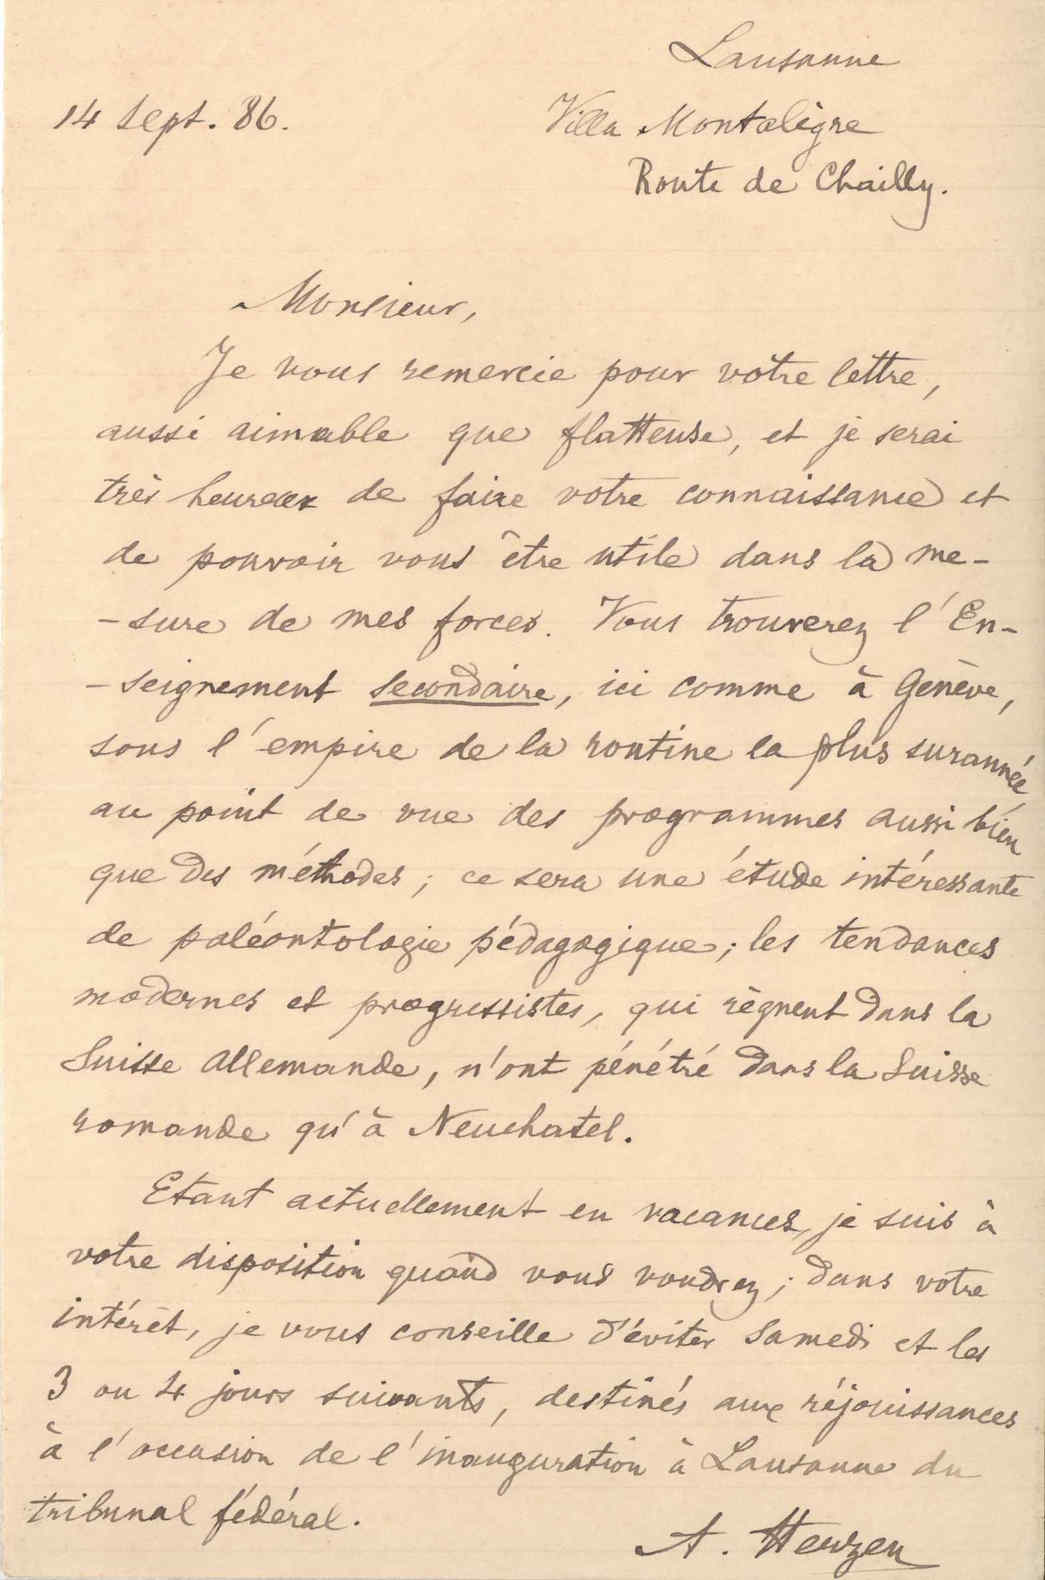 Lausanne
14 Sept. 86.
Villa Montalègre
Route de Chailly.
Monsieur,
Je vous remercie pour vôtre lettre,
aussi aimable que flatteuse, et je serai
très heureux de faire votre connaissance et
de pouvoir vous être utile dans la me-
-sure de mes forces. Vous trouverez l'En-
-seignement secondaire, ici comme à Genève,
sous l'empire de la routine la plus surannée
au point de vue des programmes aussi bien
que des méthodes; ce sera une étude intéressante
de paléontologie pédagogique; les tendances
modernes et progressistes, qui règnent dans la
Suisse allemande, n'ont pénétré dans la Suisse
romande qu'à Neuchatel.
Etant actuellement en vacances, je suis à
votre disposition quand vous voudrez; dans votre
intérêt, je vous conseille d'éviter Samedi et les
3 ou 4 jours suivants, destinés aux réjouissances
à l'occasion de l'inauguration à Lausanne du
tribunal fédéral.
A. Herzen